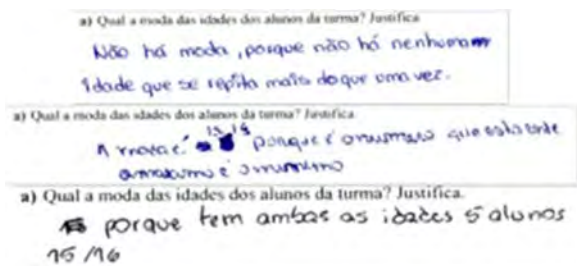 a) Qual a moda das idades dos alunos da turma? Justifica
Não há moda, porque não há nenhuma
idade que se repita mais do que uma vez.
a) Qual a moda das idades dos alunos da turma? Justifica
A moda é 15 porque é o numero que esta entre
o maximo e o minimo
a) Qual a moda das idades dos alunos da turma? Justifica.
porque tem ambas as idades 5 alunos
15/16